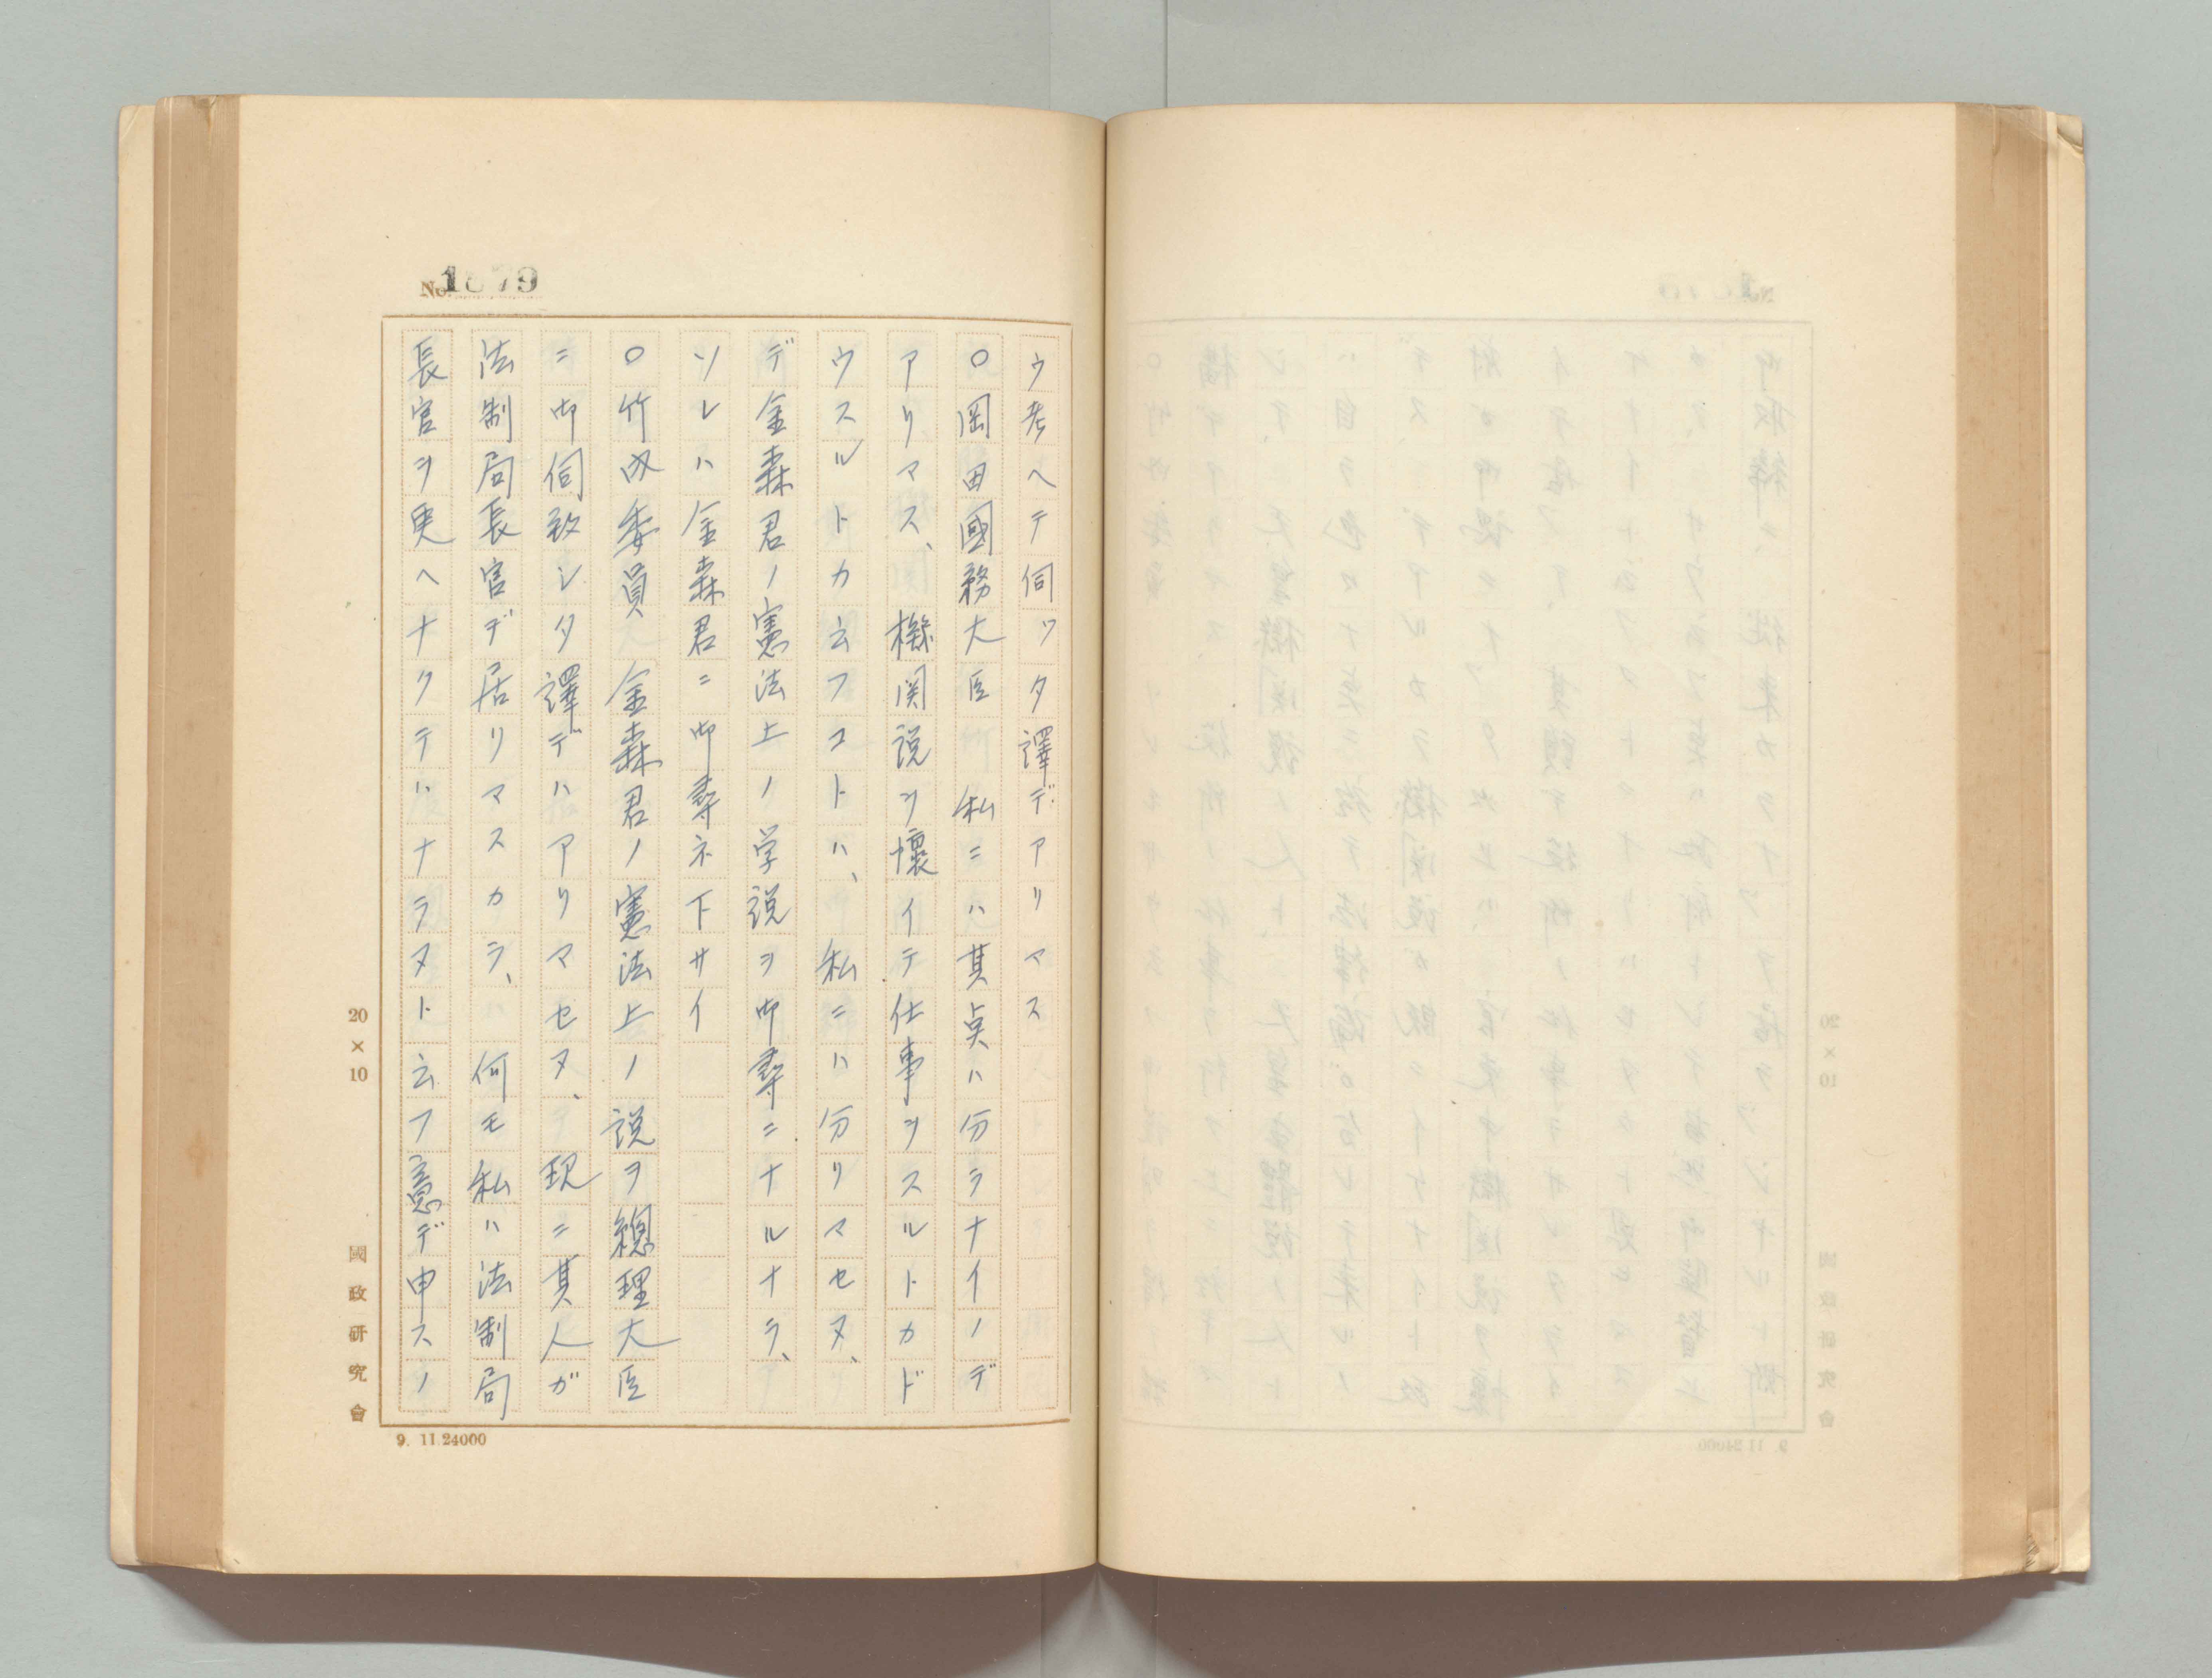 No. 1879
ウ考ヘテ伺ツタ譯デアリマス
○岡田國務大臣 私ニハ其点ハ分ラナイノデ
アリマス、機関説ヲ懐イテ仕事ヲスルトカド
ウスルトカ云フコトハ、私ニハ分リマセヌ、
デ金森君ノ憲法上ノ学説ヲ御尋ニナルナラ、
ソレハ金森君ニ御尋ネ下サイ
○竹内委員 金森君ノ憲法上ノ説ヲ總理大臣
ニ御伺致シタ譯デハアリマセヌ、現ニ其人ガ
法制局長官デ居リマスカラ、何モ私ハ法制局
長官ヲ更ヘナクテハナラヌト云フ意デ申スノ
20×10
國政研究會
9. 11.24000